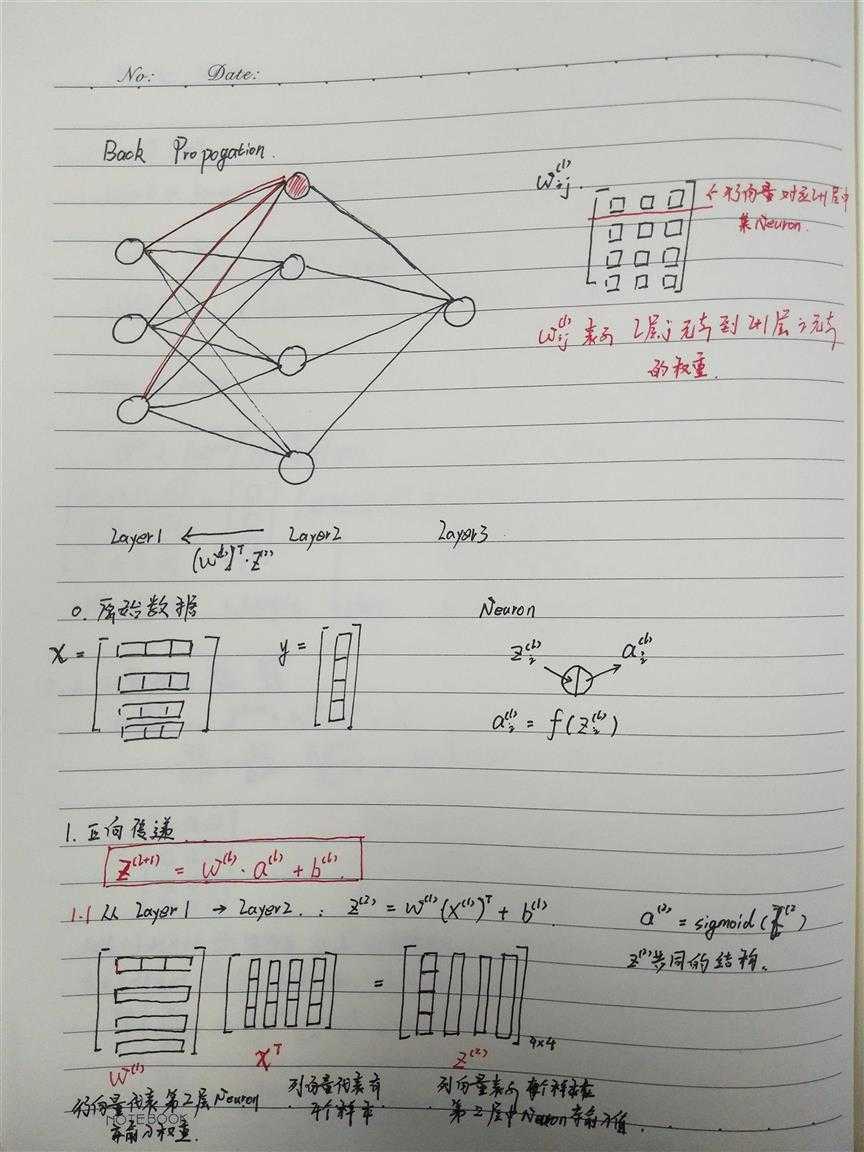 No: Date:
Back Propogation.
W_ij^(l).
← 行向量对应l+1层中
某Neuron.
W_ij^(l) 表示 l层j元素到l+1层i元素
的权重.
Layer1 ← Layer2 Layer3
(W^(l))^T · Z^(2)
0. 原始数据
Neuron
X = y =
Z_i^(l) a_i^(l)
a_i^(l) = f(Z_i^(l))
1. 正向传递
Z^(l+1) = W^(l) · a^(l) + b^(l).
1.1 从 Layer1 → Layer2. : Z^(2) = W^(1) (X^(1))^T + b^(1).
a^(2) = sigmoid(Z^(2))
Z^(2)共同的结构.
= 4×4
W^(1) X^T Z^(2)
行向量代表第2层Neuron
权重.
列向量代表
个样本
列向量表示每个样本在
第二层中Neuron 值.
NOTEBOOK